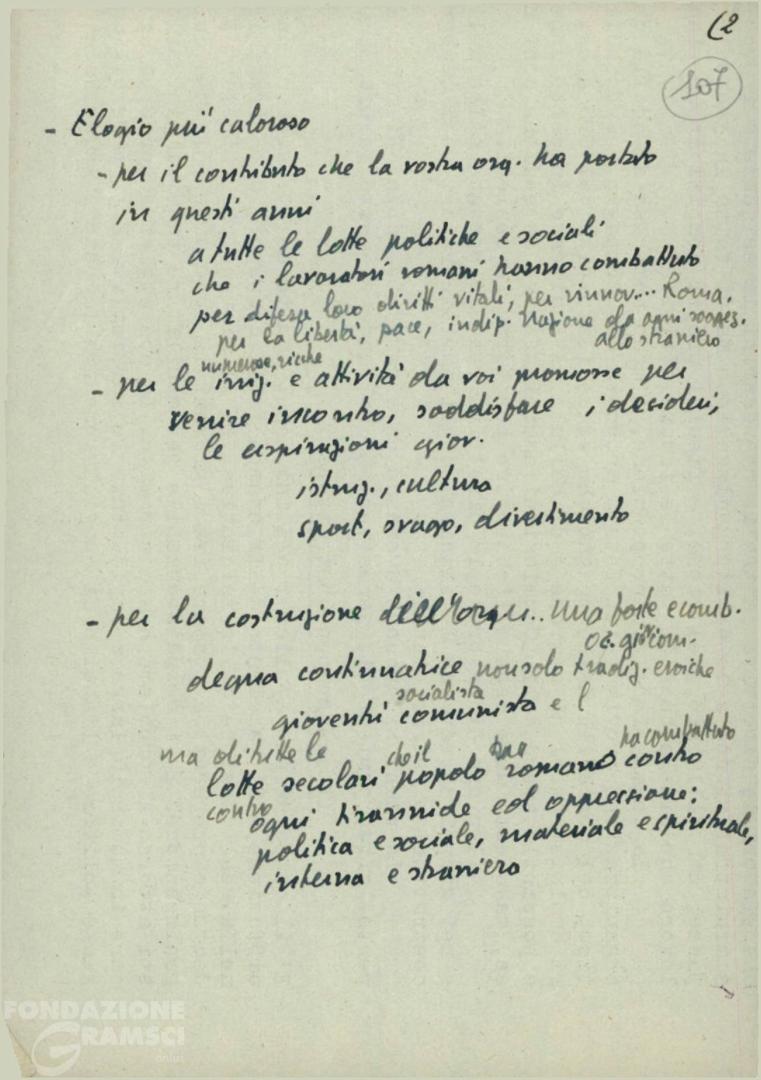 (2
107
- Elogio più caloroso
- per il contributo che la vostra org. ha portato
in questi anni
a tutte le lotte politiche e sociali
che i lavoratori romani hanno combattuto
per difesa loro diritti vitali, per rinnov.... Roma.
per la libertà, pace, indip. nazione da ogni sogges.
allo straniero
numerose, ricche
- per le iniz. e attività da voi promosse per
venire incontro, soddisfare i desideri,
le aspirazioni giov.
istruz., cultura
sport, svago, divertimento
- per la costruzione dell'org... una forte e comb.
giov. com.
degna continuatrice non solo tradiz. eroiche
socialista
gioventù comunista e l
ma di tutte le che il ha combattuto
lotte secolari popolo romano contro
contro
ogni tirannide ed oppressione:
politica e sociale, materiale e spirituale,
interna e straniera
FONDAZIONE
GRAMSCI
onlus